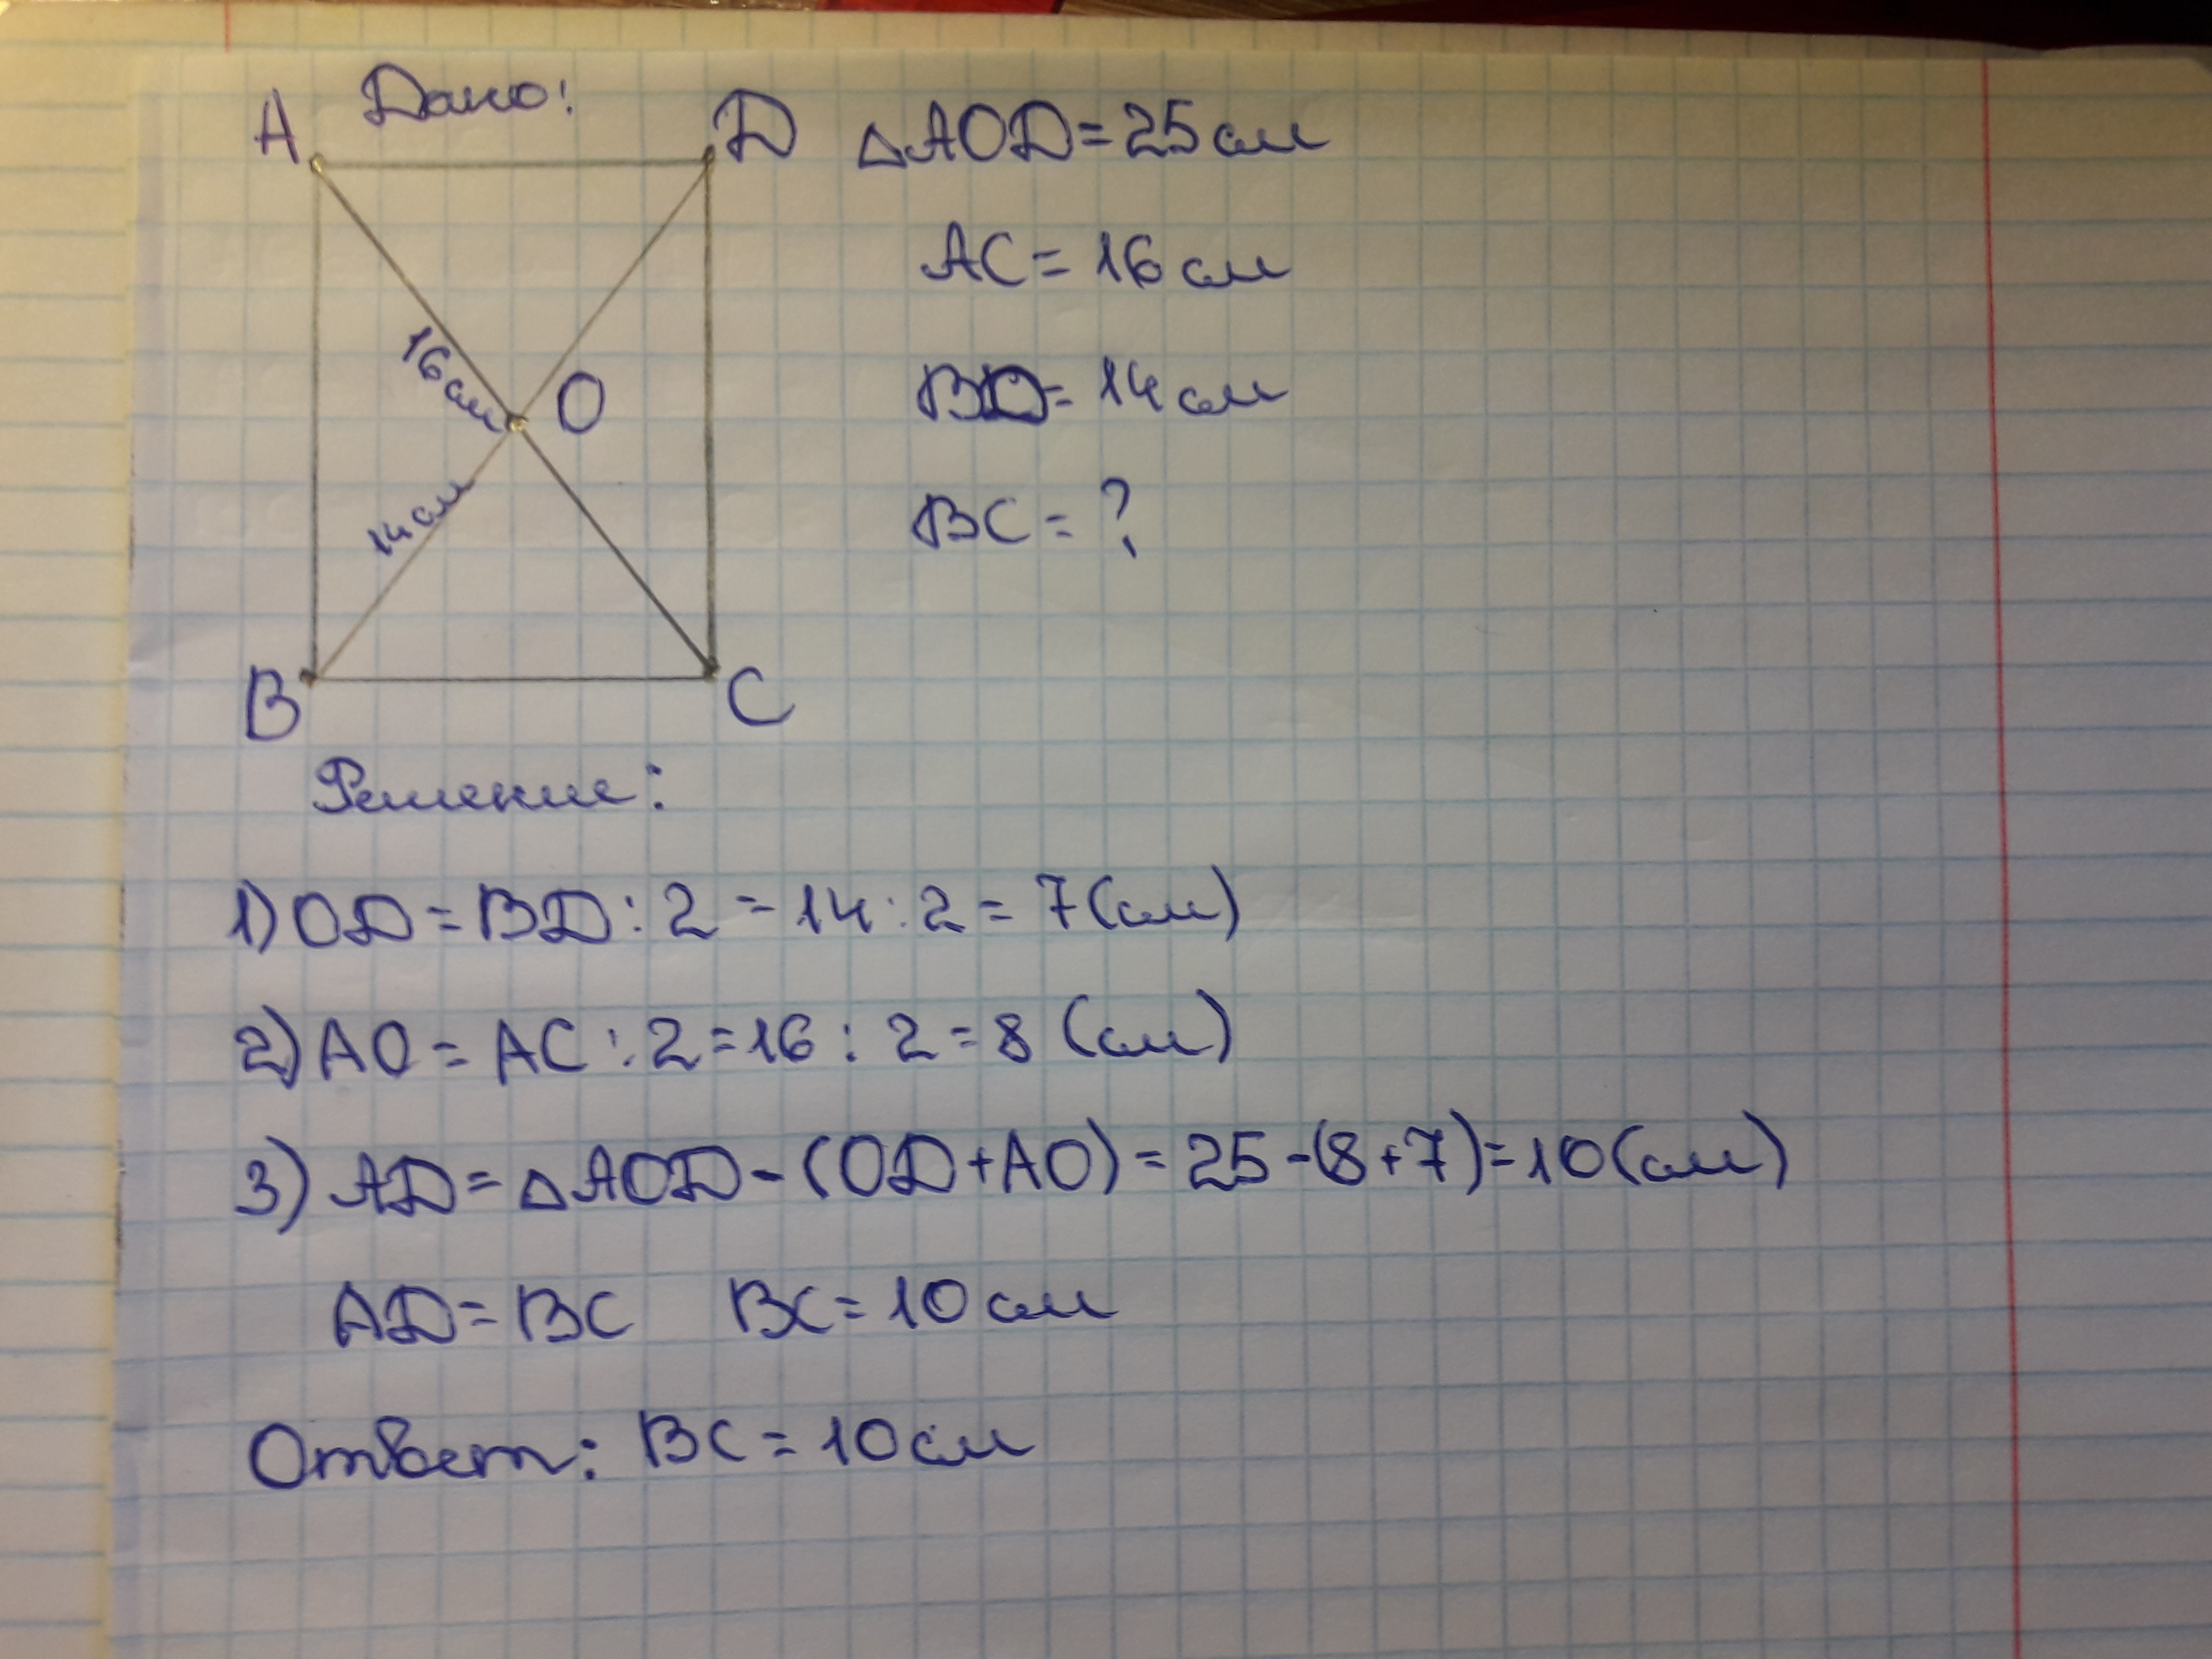 Дано:
A
D
△AOD=25см
AC=16см
16см
O
BD=14см
14см
BC=?
B
C
Решение:
1) OD=BD:2=14:2=7(см)
2) AO=AC:2=16:2=8 (см)
3) AD=△AOD-(OD+AO)=25-(8+7)=10(см)
AD=BC BC=10см
Ответ: BC=10см